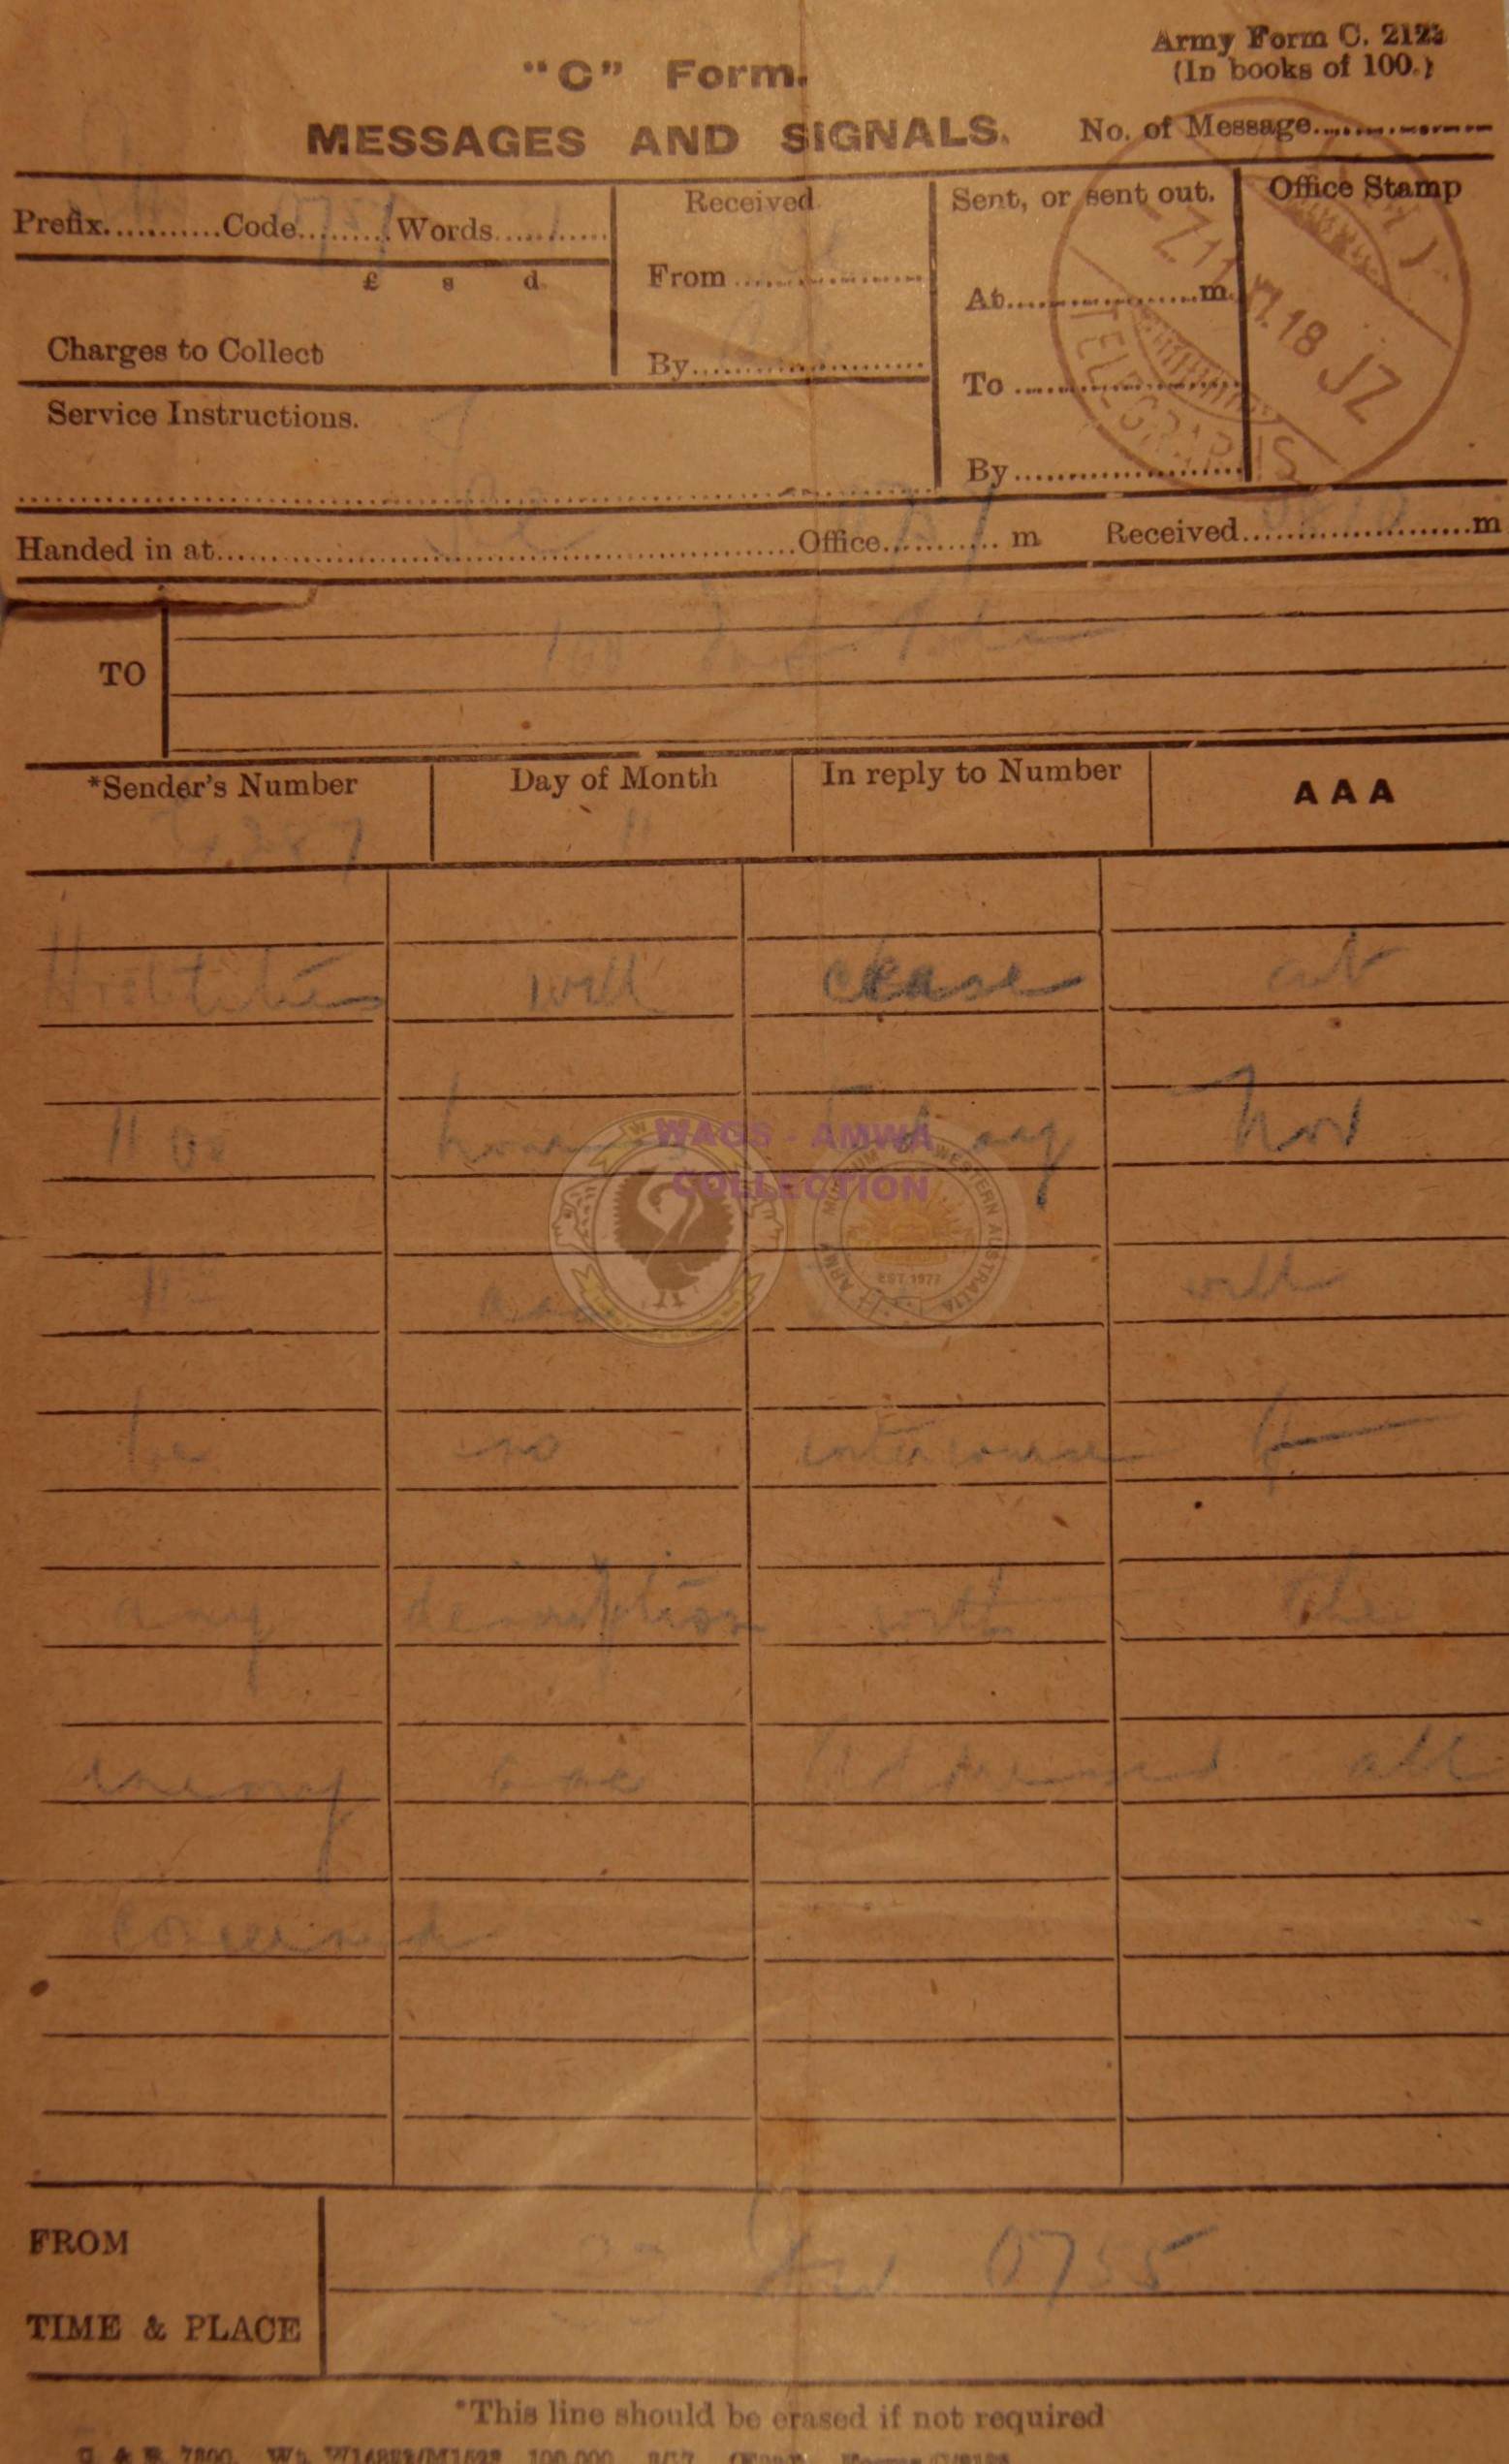 Army Form C. 2123
(In books of 100.)
"C" Form.
MESSAGES AND SIGNALS.
No. of Message
Prefix Code 0751 Words
Received
Sent, or sent out.
Office Stamp
£ s d.
From
At m.
Charges to Collect
By
To
Service Instructions.
By
11 18 JZ
TELEGRAPHS
Handed in at Office m Received m
TO
*Sender's Number
Day of Month
In reply to Number
AAA
287
11
Hostilities will cease at
11 00 hours today Nov
11 aaa will
be no intercourse of
any description with the
enemy Addressed all
concerned
WAGS - AMWA
COLLECTION
ARMY MUSEUM OF WESTERN AUSTRALIA
EST 1977
FROM
0755
TIME & PLACE
*This line should be erased if not required